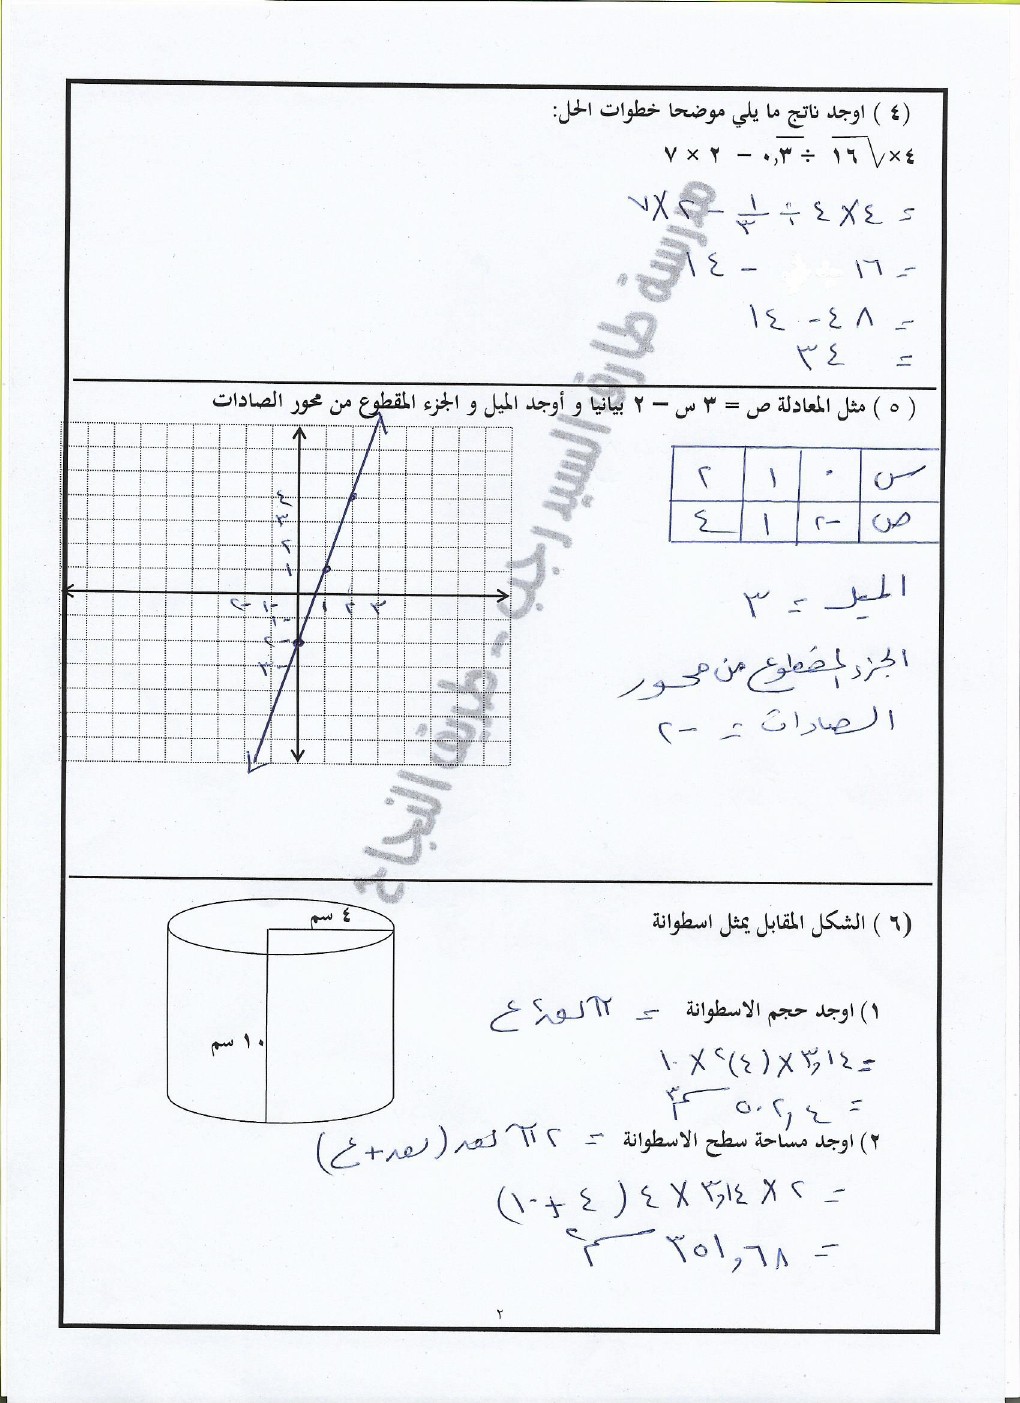 (٤) اوجد ناتج ما يلي موضحا خطوات الحل:
٤ × √١٦ ÷ ٠,٣̅ − ٢ × ٧
= ٤ × ٤ ÷ ١/٣ − ٢ × ٧
= ١٦ − ١٤
= ٤٨ − ١٤
= ٣٤
(٥) مثل المعادلة ص = ٣ س − ٢ بيانيا و أوجد الميل و الجزء المقطوع من محور الصادات
س ٠ ١ ٢
ص -٢ ١ ٤
٤
٣
٢
١
-٢ -١ ١ ٢ ٣
-١
-٢
-٣
الميل = ٣
الجزء المقطوع من محور
الصادات = -٢
(٦) الشكل المقابل يمثل اسطوانة
٤ سم
١٠ سم
١) اوجد حجم الاسطوانة = π نق٢ ع
= ٣,١٤ × (٤)٢ × ١٠
= ٥٠٢,٤ سم٣
٢) اوجد مساحة سطح الاسطوانة = ٢ π نق (نق + ع)
= ٢ × ٣,١٤ × ٤ (٤ + ١٠)
= ٣٥١,٦٨ سم٢
٢
مدرسة طارق السيد رجب - طريق النجاح